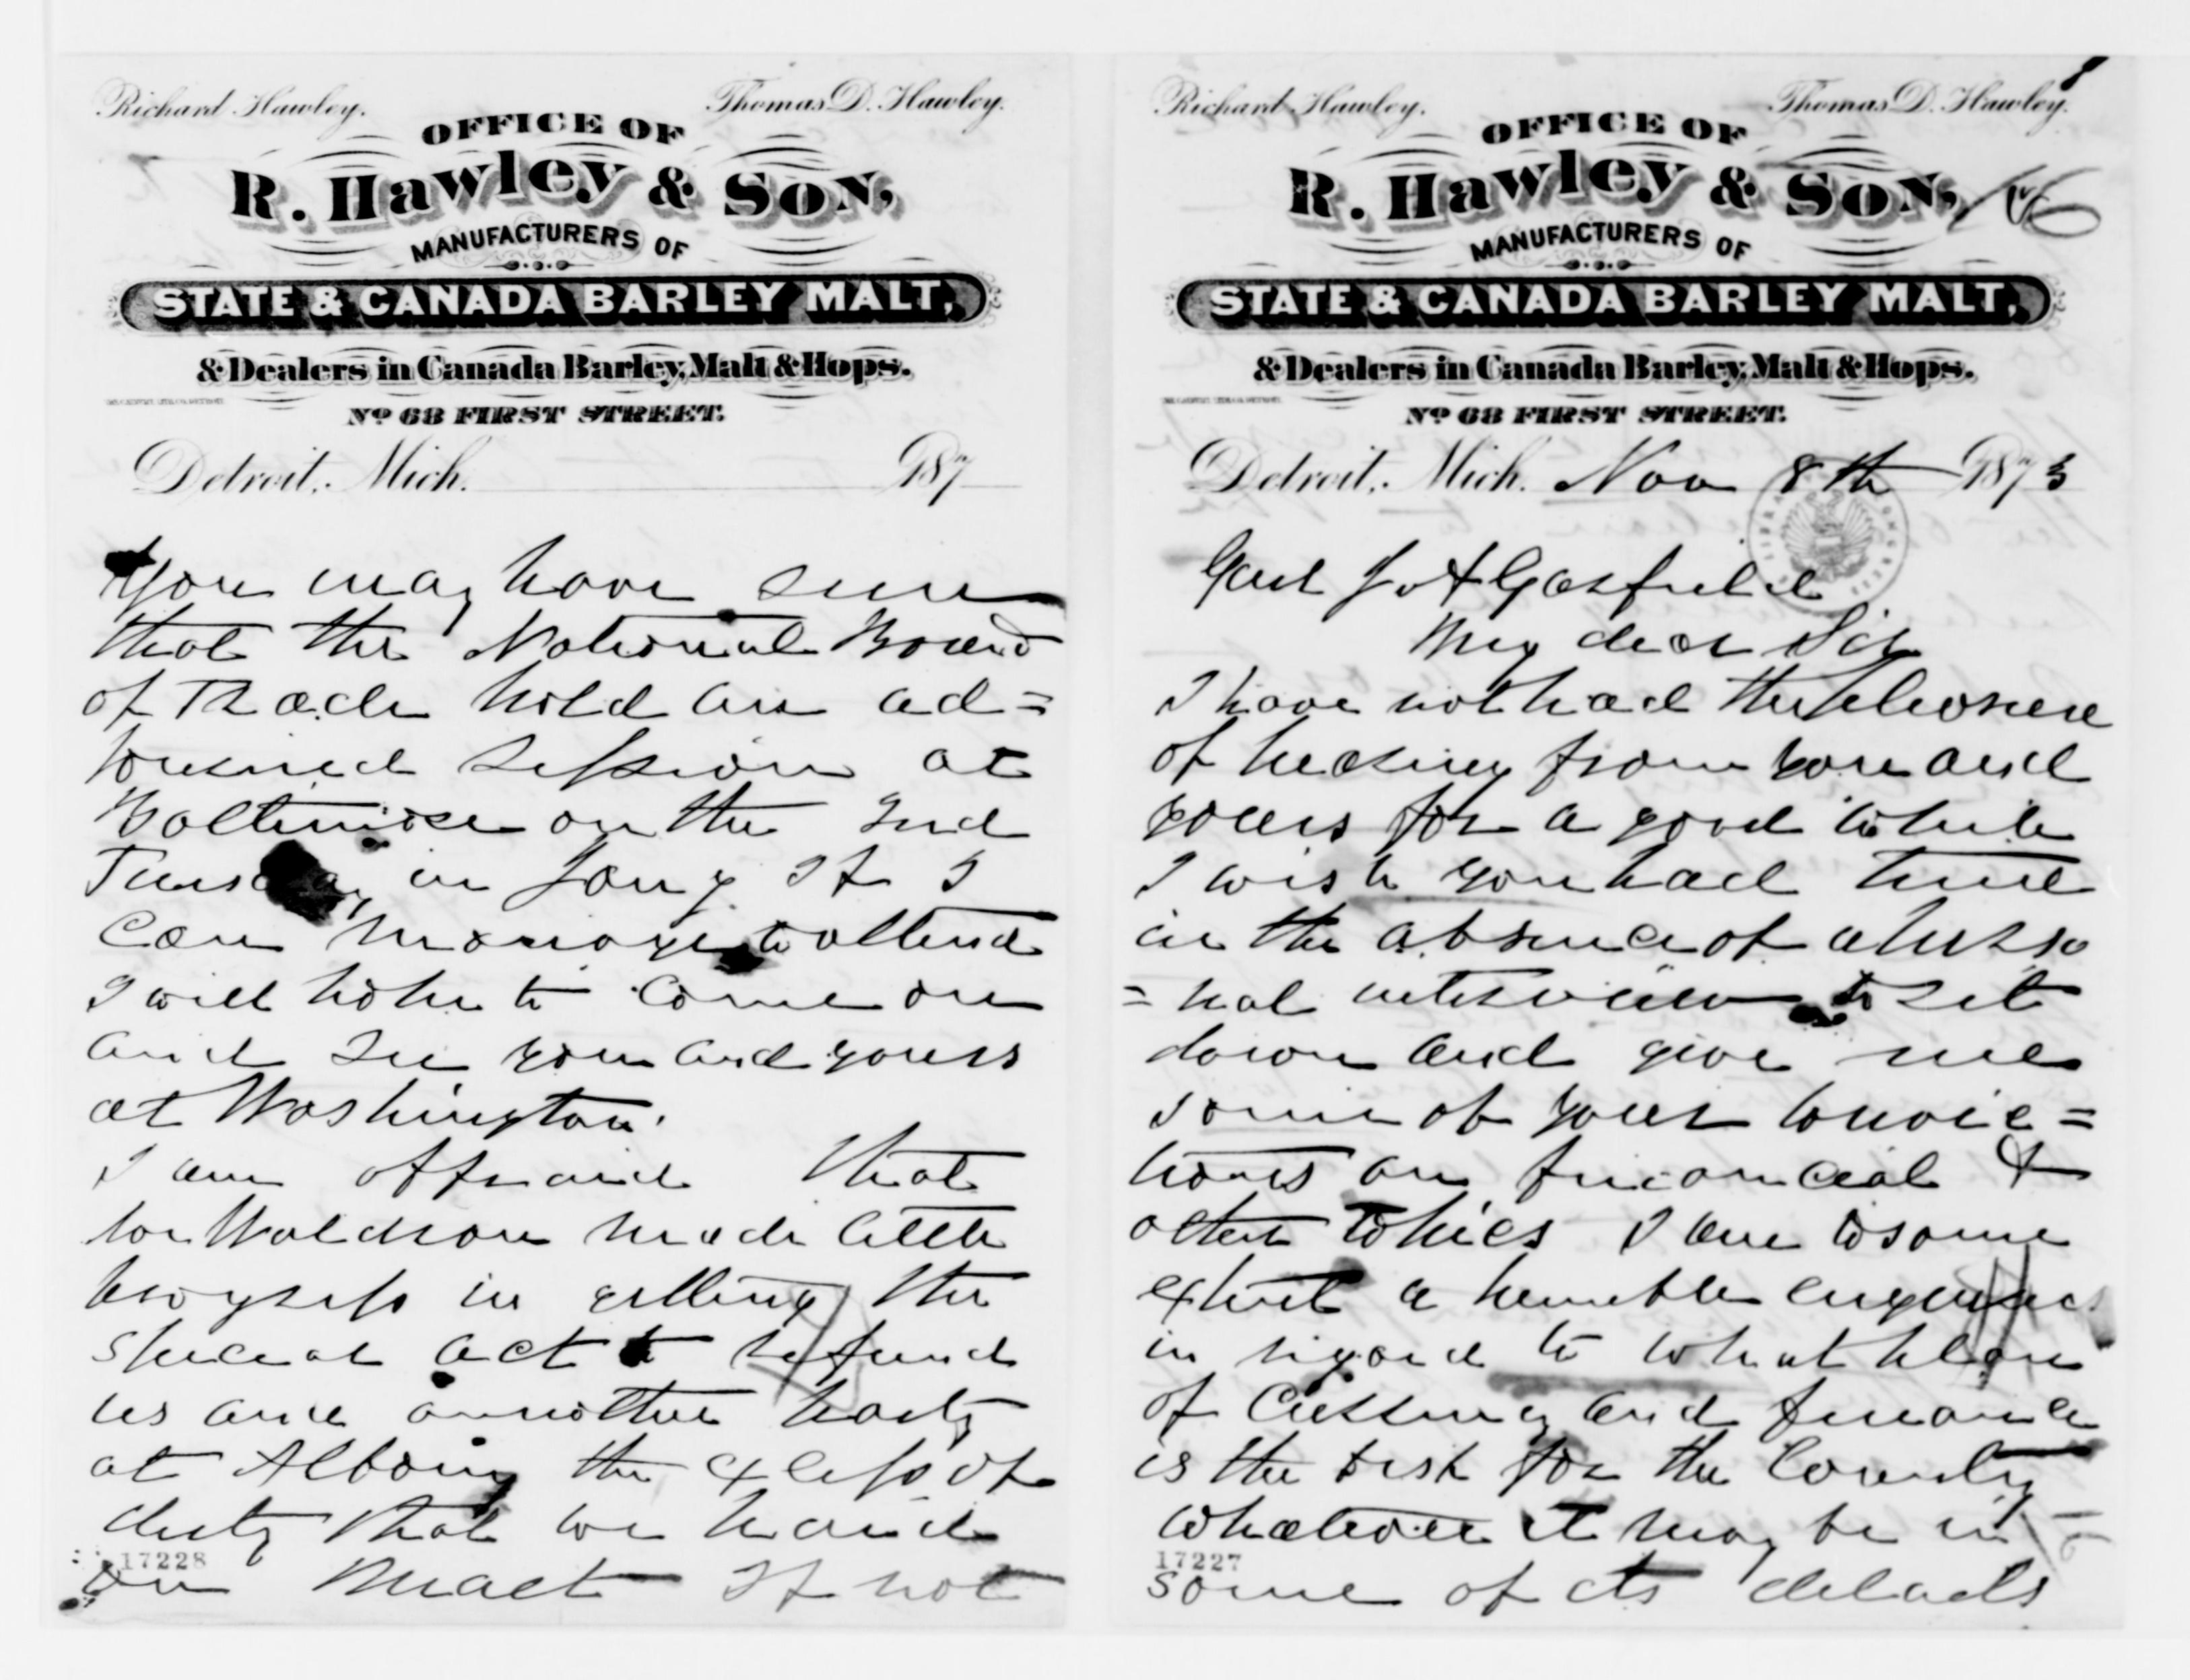 Richard Hawley. Thomas D. Hawley.
OFFICE OF
R. HAWLEY & SON,
MANUFACTURERS OF
STATE & CANADA BARLEY MALT,
& Dealers in Canada Barley, Malt & Hops.
No 68 FIRST STREET.
Detroit, Mich. 187
You may have seen
that the National Board
of Trade hold an ad=
journed session at
Baltimore on the 2nd
Tuesday in Jany. If I
can manage to attend
I will hope to come on
and see you and yours
at Washington.
I am affraid that
Waldron made little
progress in getting the
special act to refund
us and annother party
at Albany the excess of
duty that we paid
on Malt If not
Richard Hawley. Thomas D. Hawley.
OFFICE OF
R. HAWLEY & SON,
MANUFACTURERS OF
STATE & CANADA BARLEY MALT,
& Dealers in Canada Barley, Malt & Hops.
No 68 FIRST STREET.
Detroit, Mich. Nov 8th 1873
Genl J A Garfield
My dear Sir
I have not had the pleasure
of hearing from you and
yours for a good while
I wish you had time
in the absence of a perso
=nal interview to sit
down and give me
some of your convic=
tions on financial &
other topics I am to some
extent a humble enquirer
in regard to what plan
of currency and finance
is the best for the Country
whatever it may be in
some of its details
17228
17227